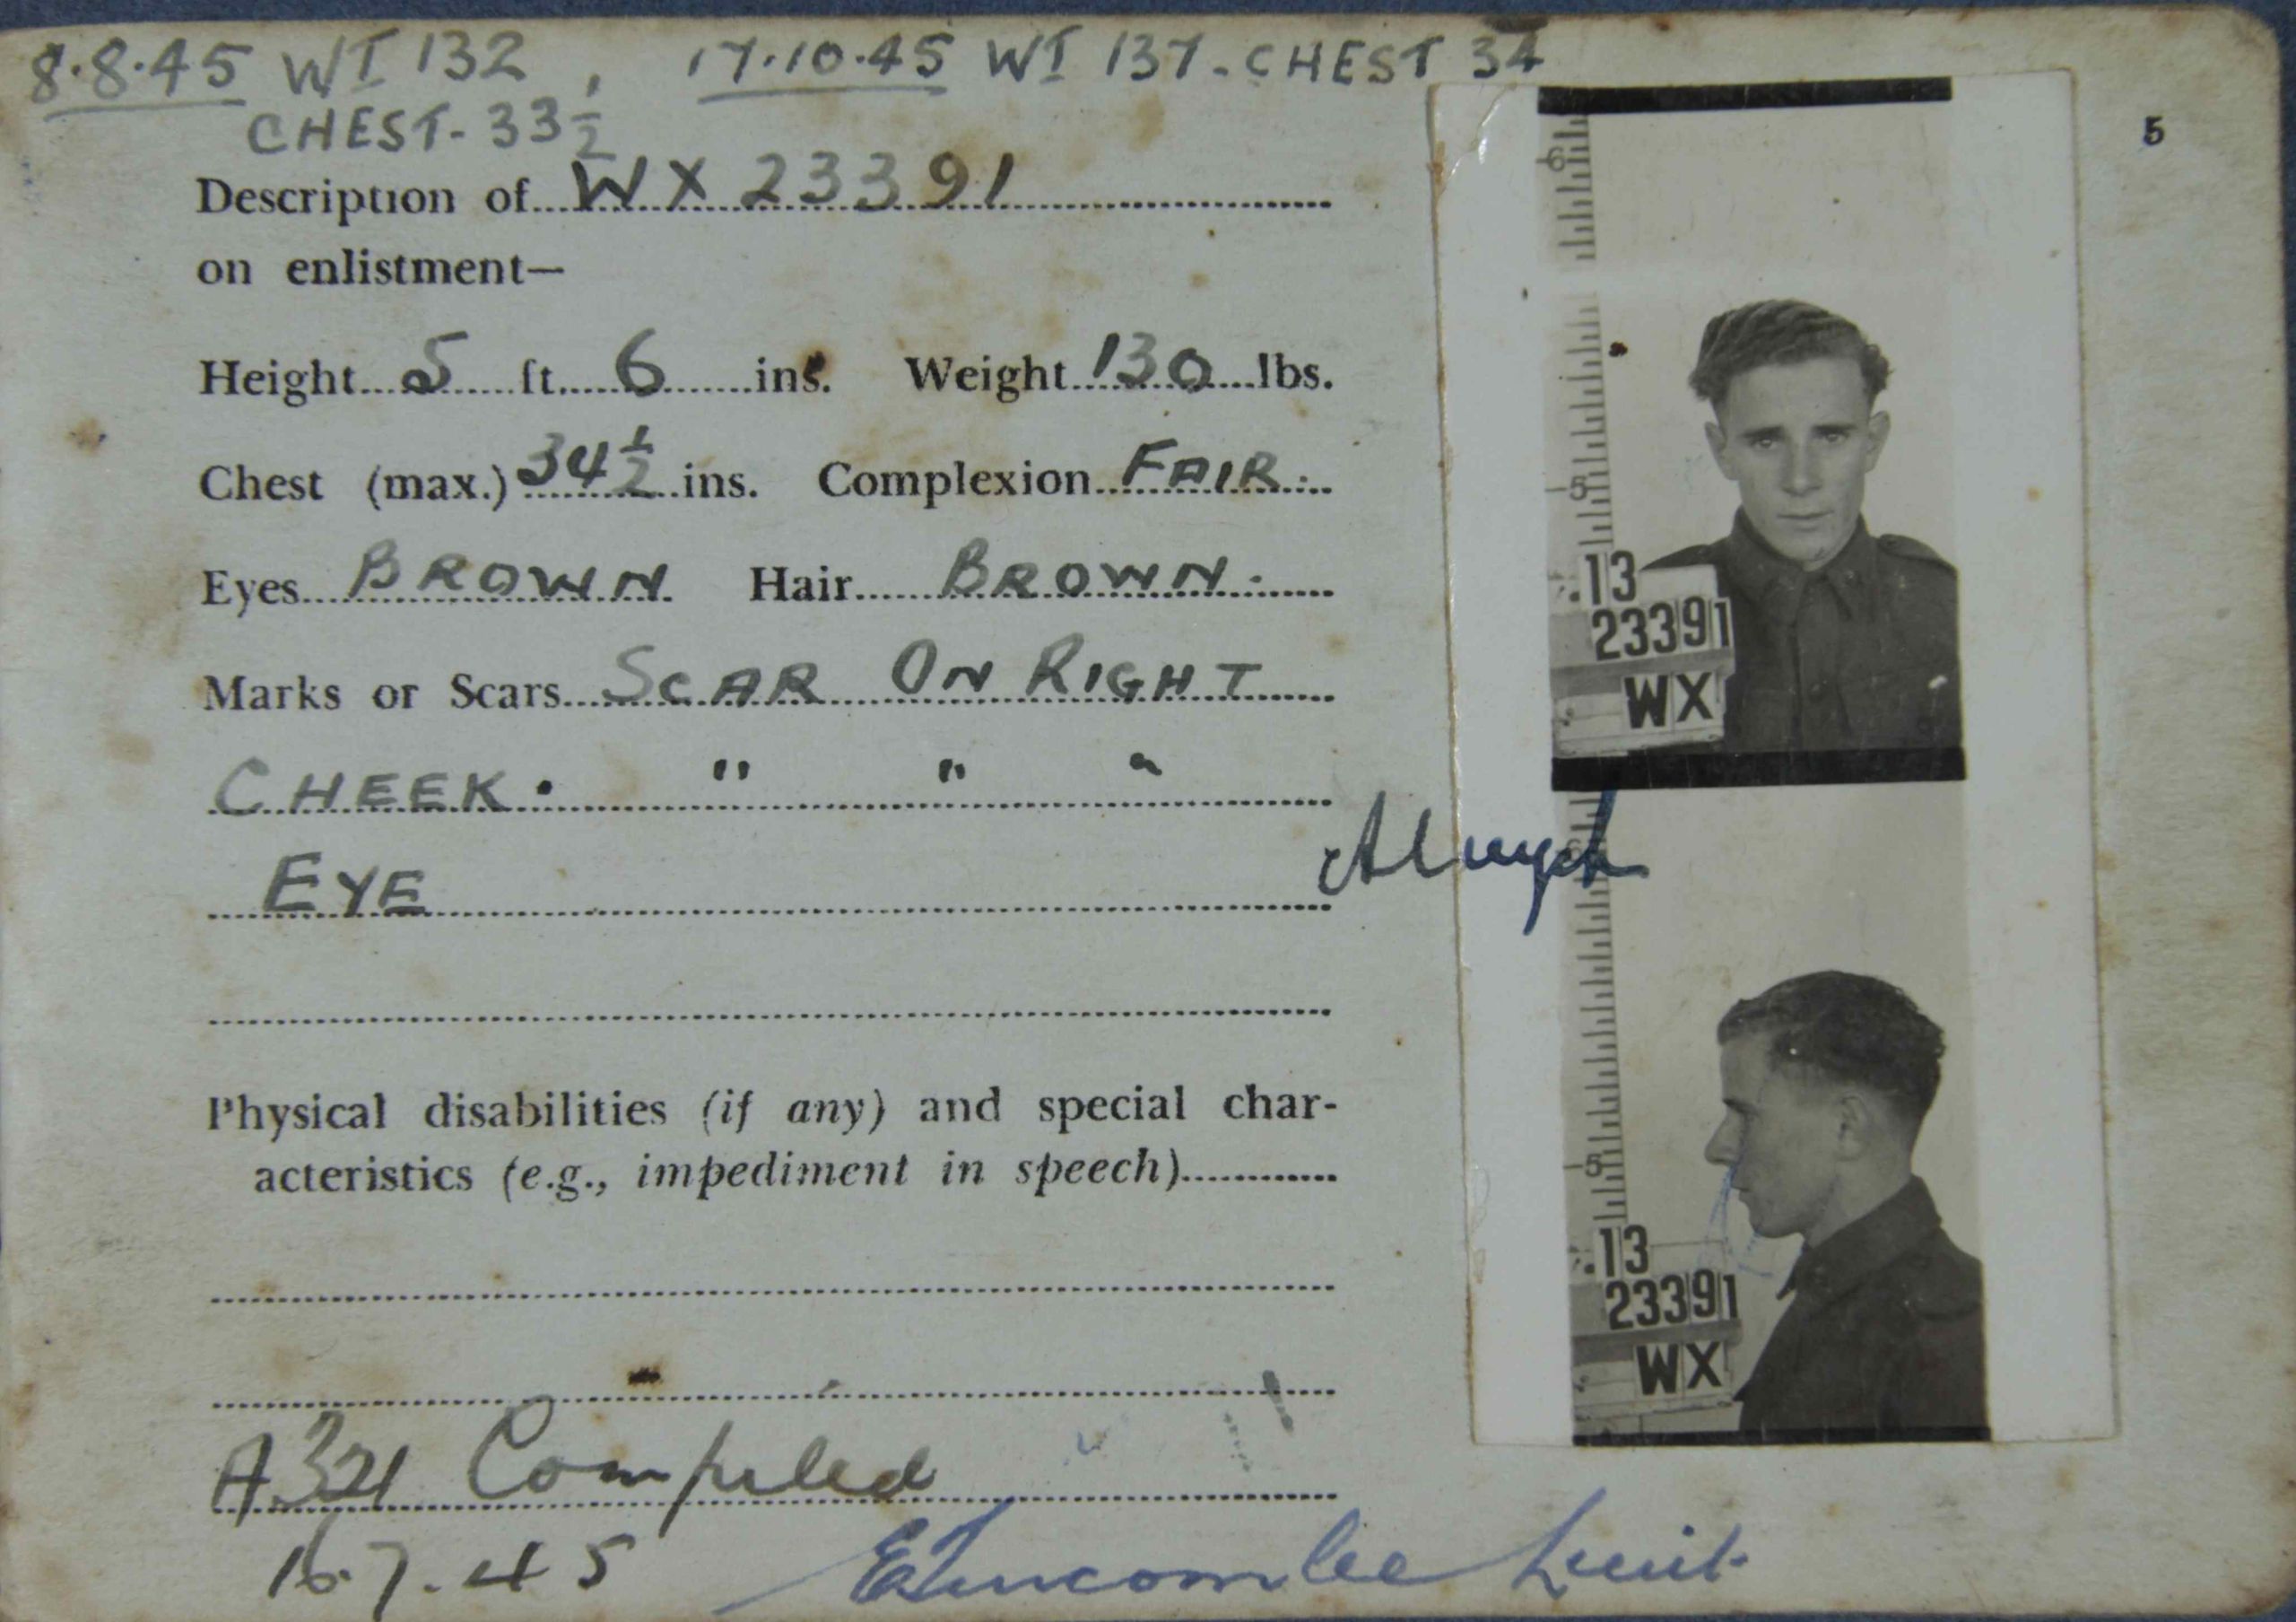 8.8.45 WT 132 , 17.10.45 WT 137 - CHEST 34
CHEST - 33½
5
Description of WX 23391
on enlistment—
Height 5 ft. 6 ins. Weight 130 lbs.
Chest (max.) 34½ ins. Complexion FAIR.
Eyes BROWN Hair BROWN.
Marks or Scars SCAR ON RIGHT
CHEEK. " " "
EYE
Physical disabilities (if any) and special char-
acteristics (e.g., impediment in speech)
A321 Compiled
16.7.45 Lieut.
6
5
13
23391
WX
5
13
23391
WX